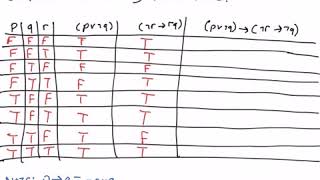 p q r (p∨¬q) (¬r→¬q) (p∨¬q)→(¬r→¬q)
F F F T T
F F T T T
F T F F F
F T T F T
T F F T T
T F T T T
T T F T F
T T T T T